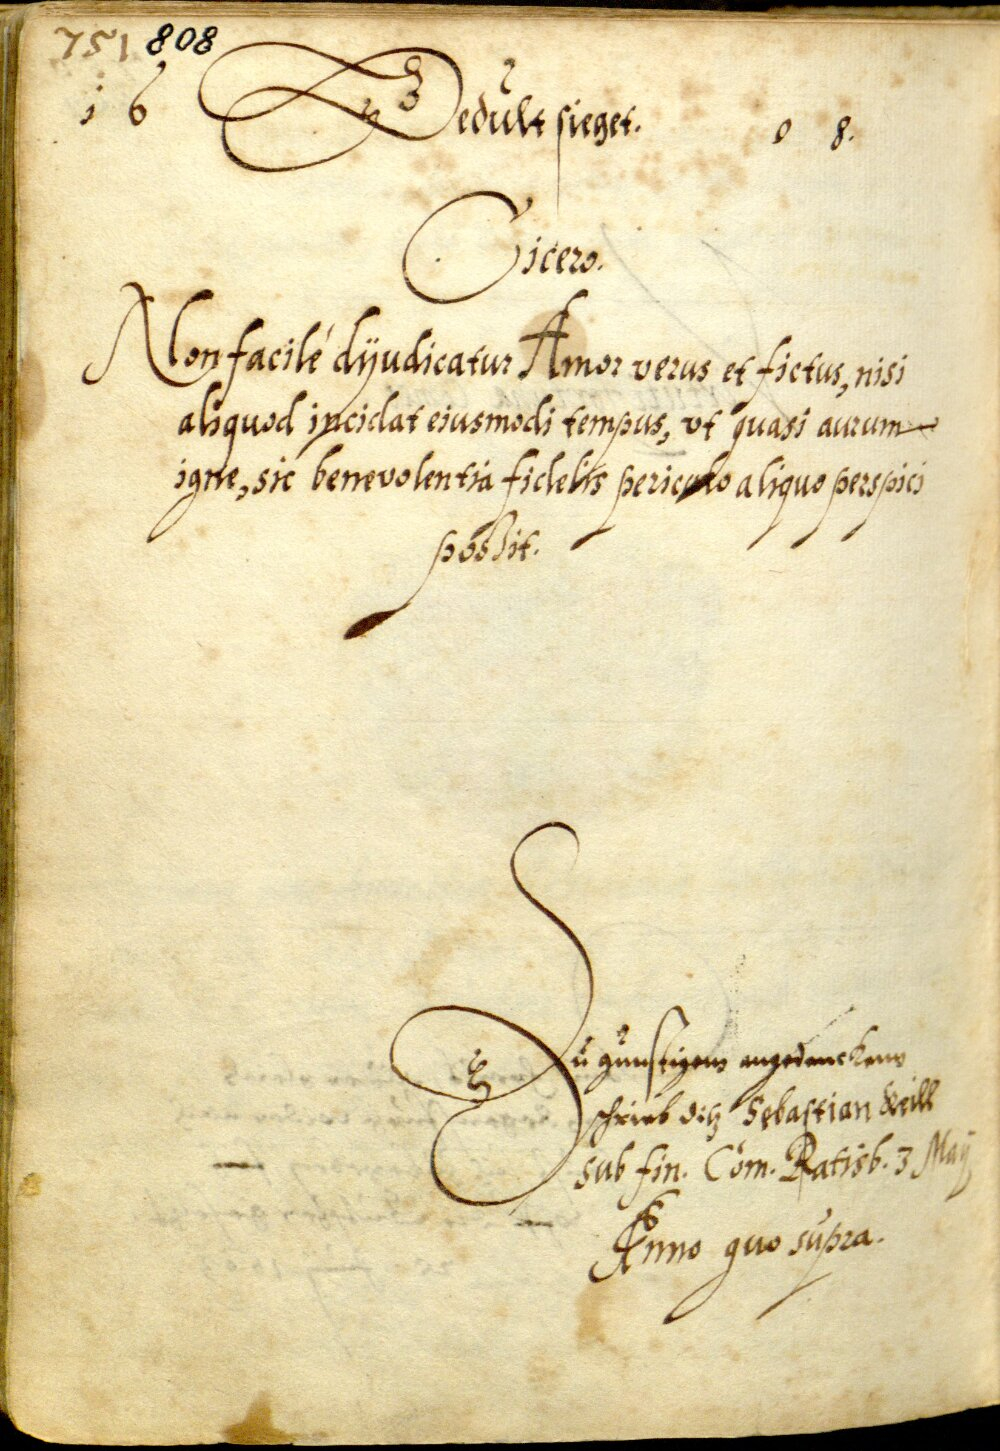 751 808
16 Gedult sieget. 08.
Cicero.
Non facilé dijudicatur Amor verus et fictus, nisi
aliquod incidat eiusmodi tempus, vt quasi aurum
igne, sic benevolentia fidelis periculo aliquo perspici
possit.
Zu gunstigem angedencken
schrieb diß Sebastian
sub fin. Com. Ratisb. 3 Maij
Anno quo supra.